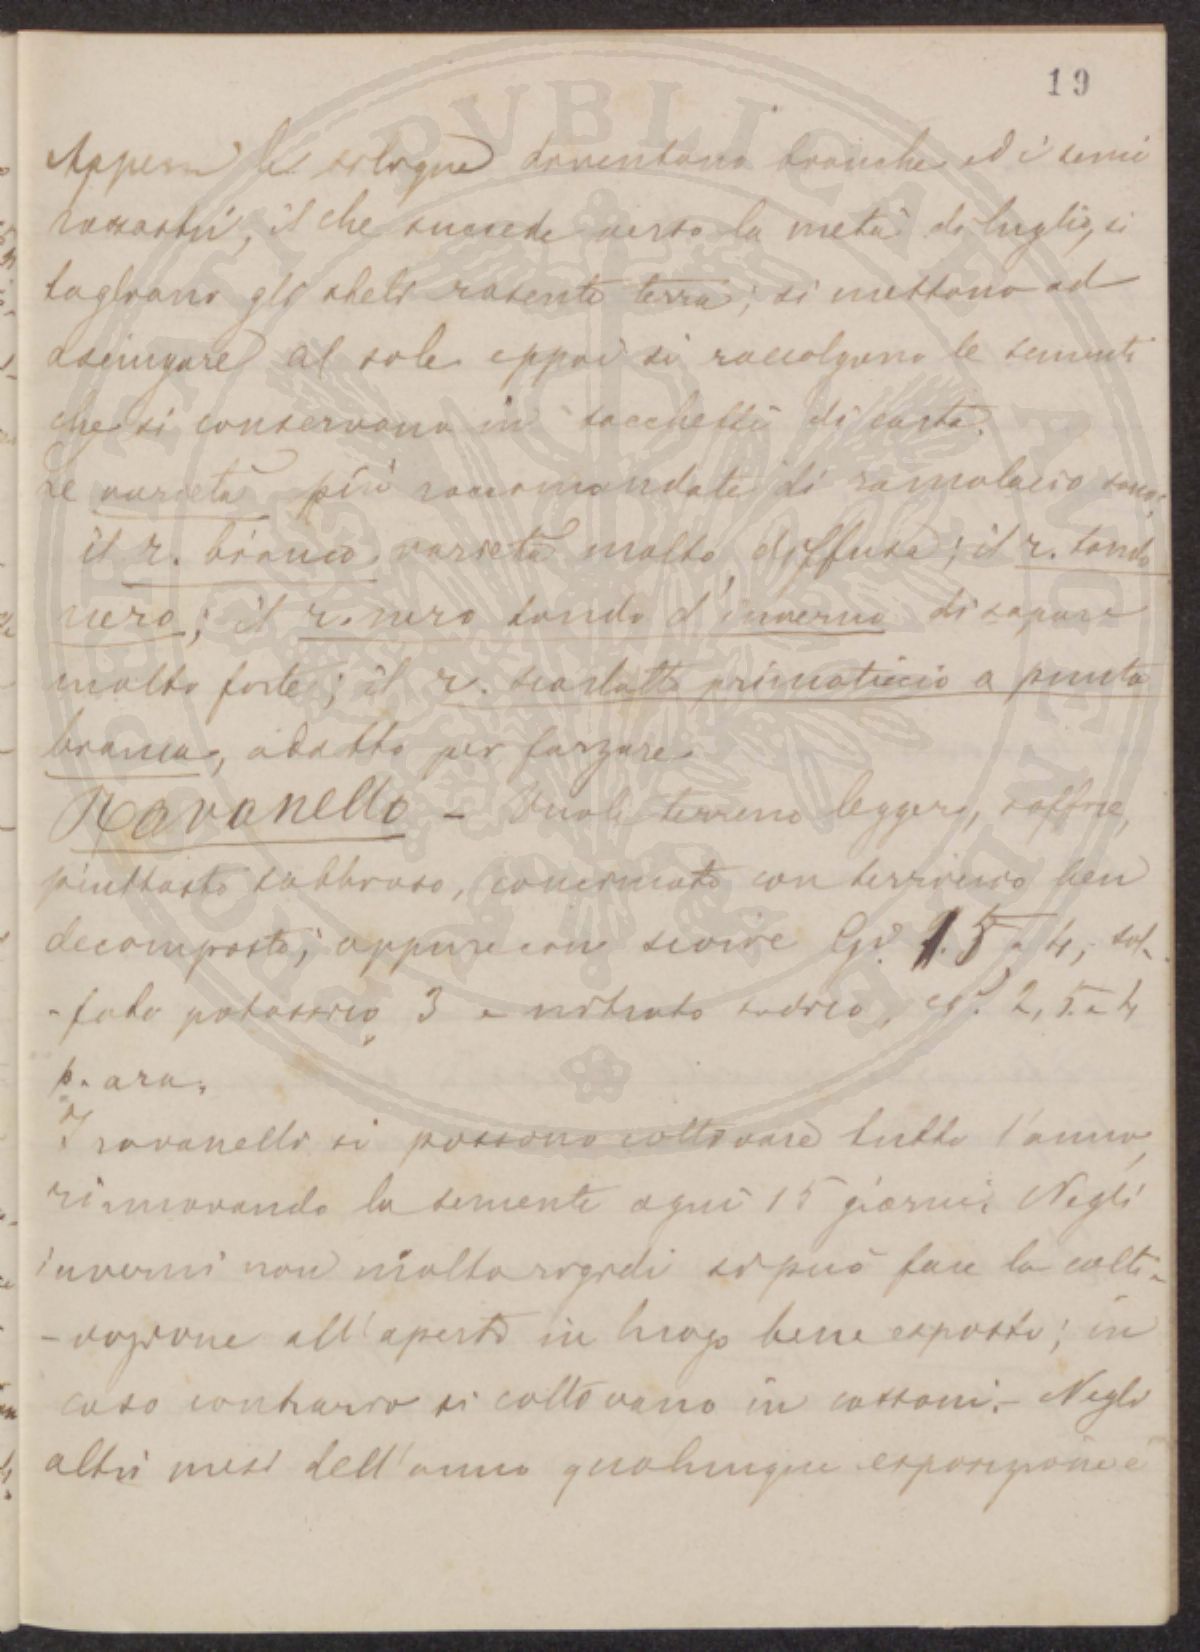 19
Appena le silique diventano bianche ed i semi
rossastri, il che succede verso la metà di luglio, si
tagliano gli steli rasente terra; si mettono ad
asciugare al sole eppoi si raccolgono le sementi
che si conservano in sacchetti di carta.
Le varietà più raccomandate di ramolaccio sono:
il r. bianco, varietà molto diffusa; il r. tondo
nero; il r. nero tondo d'inverno di sapore
molto forte; il r. scarlatto primaticcio a punta
bianca, adatto per forzare
Ravanello - Vuole terreno leggero, soffice,
piuttosto sabbioso, concimato con terriccio ben
decomposto; oppure con scorie Cg. 1.5 a 4, sol-
-fato potassico 3 e nitrato sodico, cg. 2,5 a 4
p. ara.
I ravanelli si possono coltivare tutto l'anno,
rinnovando la semente ogni 15 giorni. Negli
inverni non molto rigidi si può fare la colti-
-vazione all'aperto in luogo bene esposto; in
caso contrario si coltivano in cassoni.- Negli
altri mesi dell'anno qualunque esposizione è
PVBLICAE